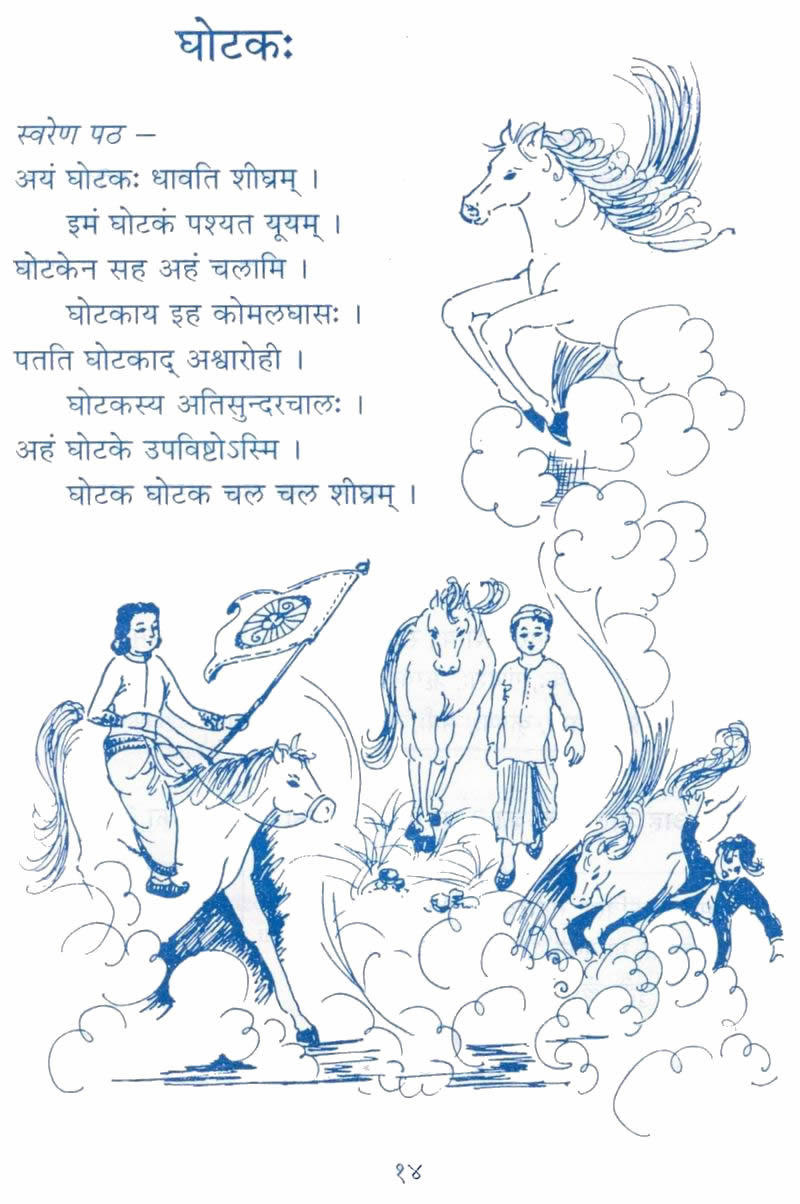 घोटकः
स्वरेण पठ –
अयं घोटकः धावति शीघ्रम् ।
इमं घोटकं पश्यत यूयम् ।
घोटकेन सह अहं चलामि ।
घोटकाय इह कोमलघासः ।
पतति घोटकाद् अश्वारोही ।
घोटकस्य अतिसुन्दरचालः ।
अहं घोटके उपविष्टोऽस्मि ।
घोटक घोटक चल चल शीघ्रम् ।
१४